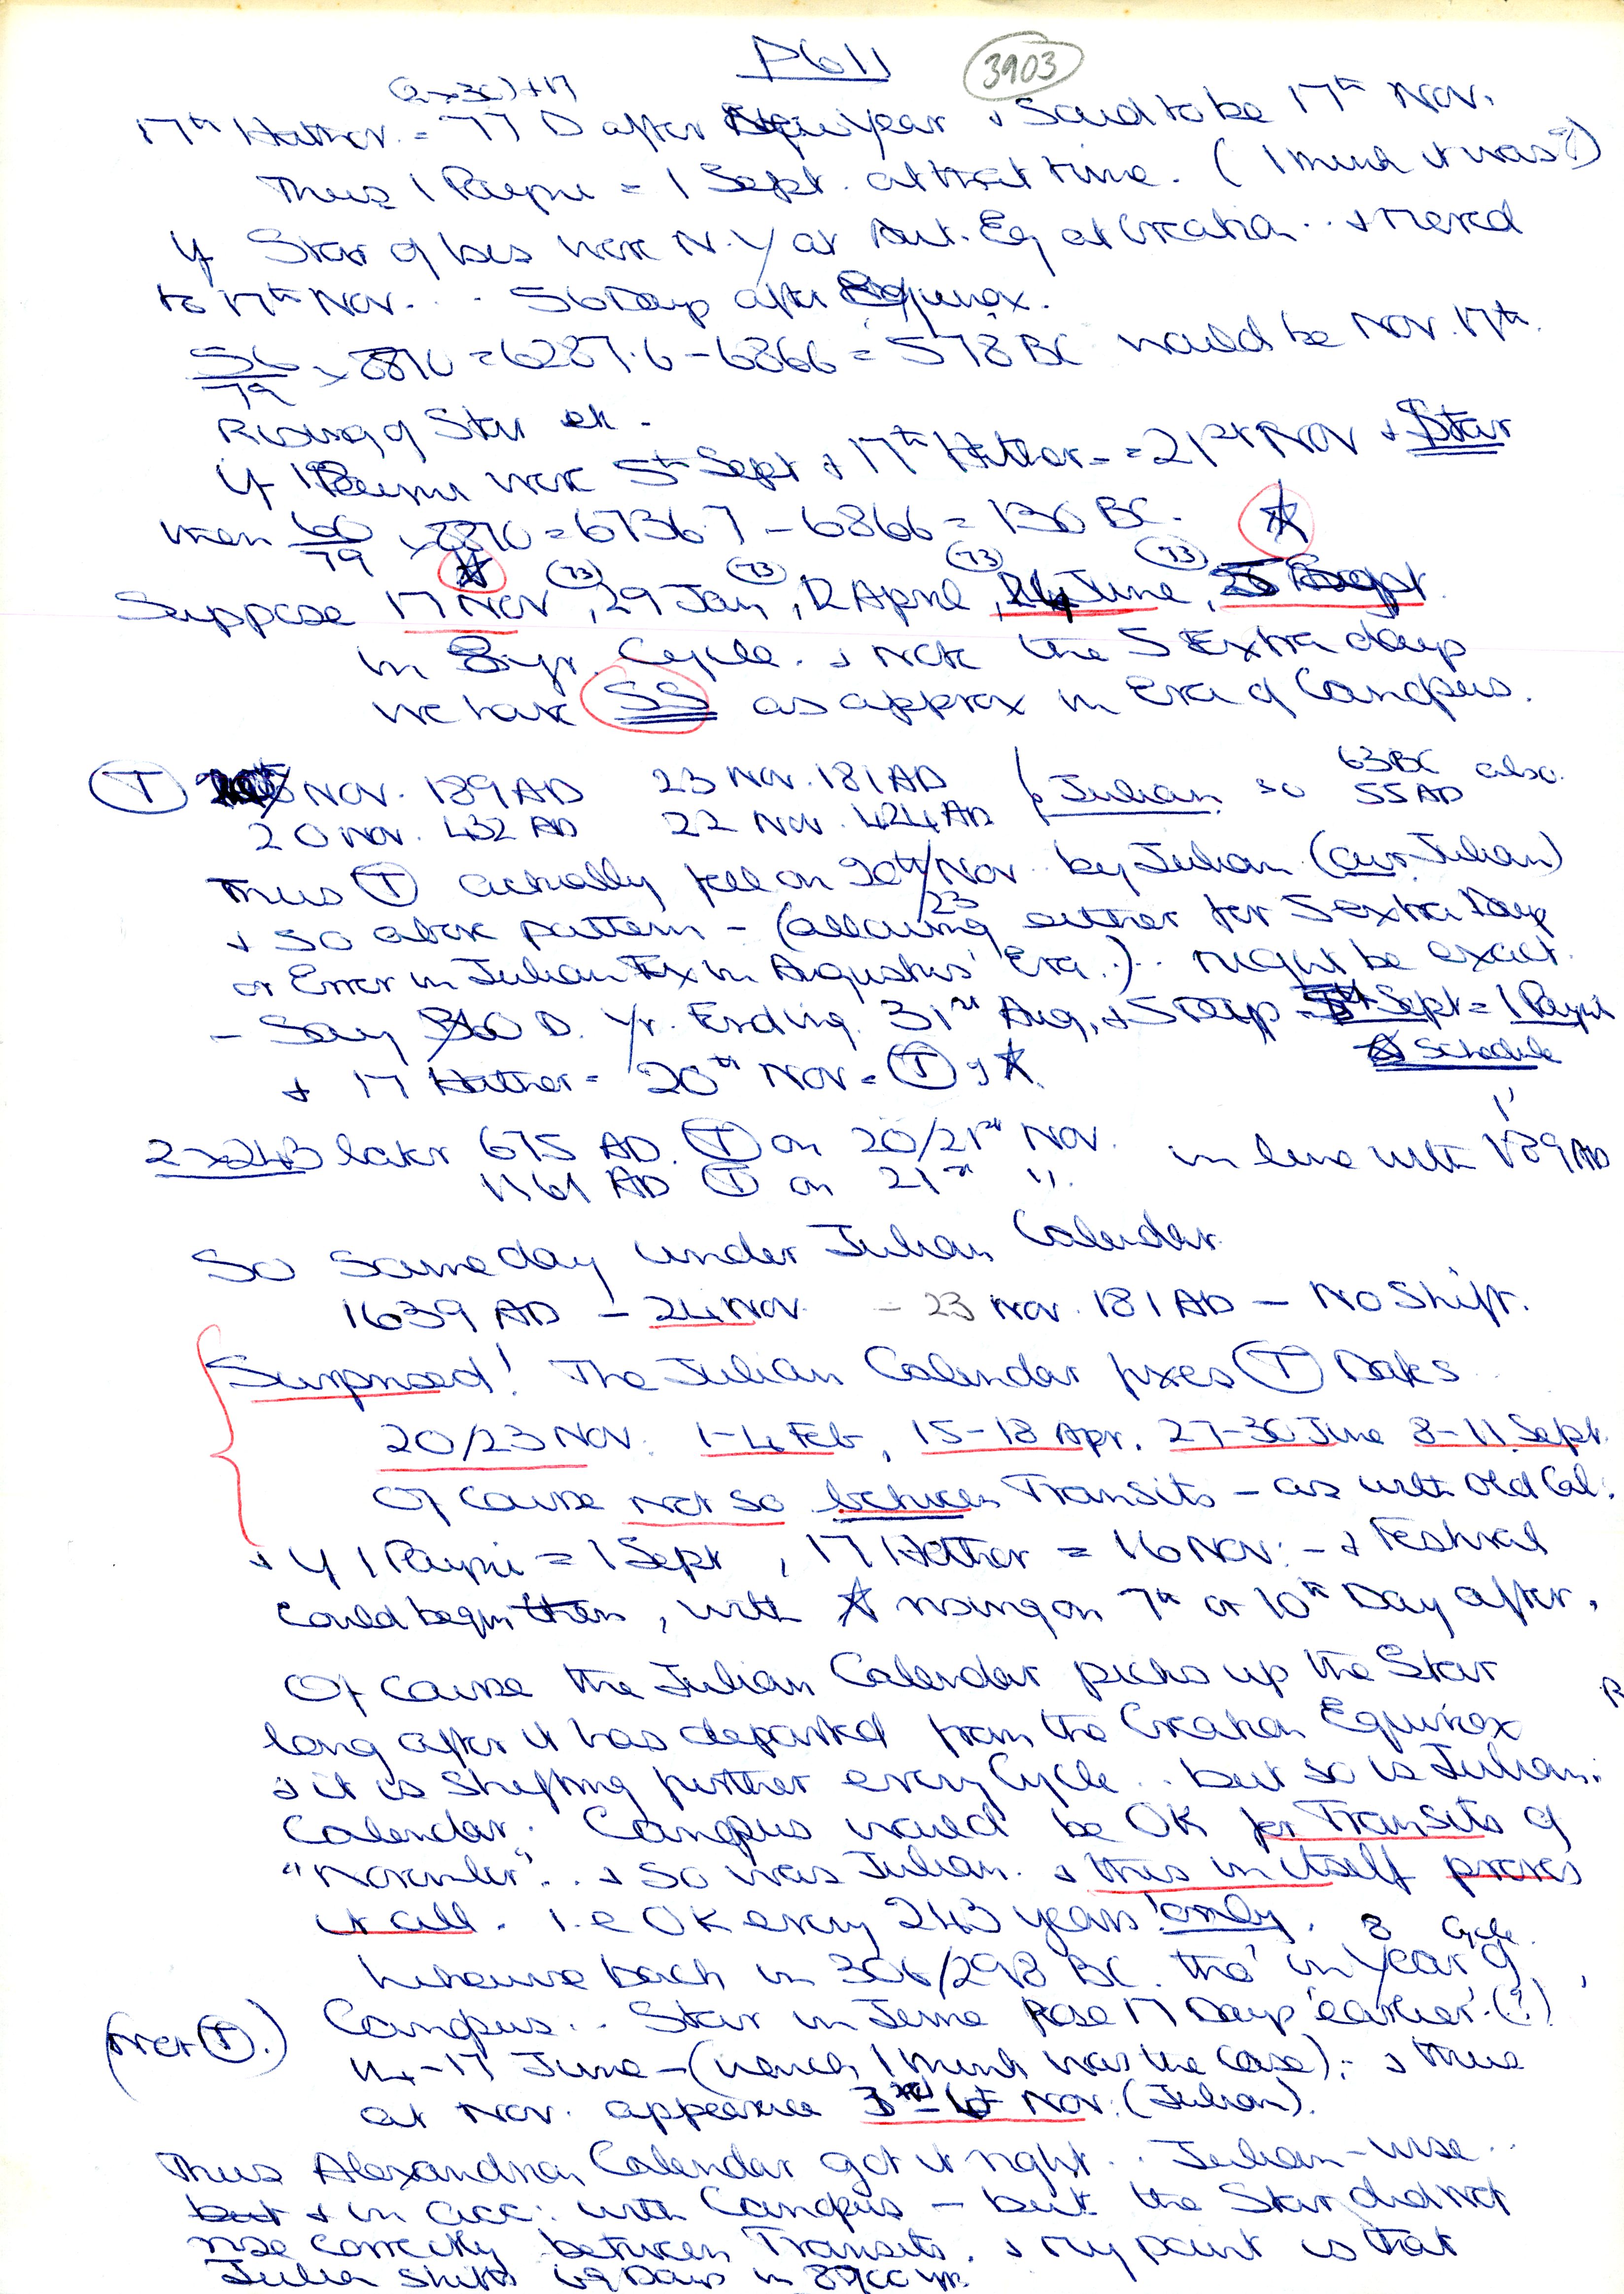 P611
3903
(2x30)+17
17th Hathor = 77 D after New Year & Said to be 17th Nov.
Thus 1 Payni = 1 Sept. at that time. (I think it was?)
If Star of Isis were N.Y at Aut. Eq at Creation .. & moved
to 17th Nov. .. 56 Days after Equinox.
56/79 x 8870 = 6287.6 - 6866 = 578 BC would be Nov. 17th.
Rising of Star etc.
If 1 Payni were 5th Sept & 17th Hathor = 21st Nov & Star
then 60/79 x 8870 = 6736.7 - 6866 = 130 BC.
(73) (73) (73) (73)
Suppose 17 Nov, 29 Jan, 12 April, 24 June, Sept.
in 8 yr. Cycle. & note the 5 Extra days
we have SS as approx in Era of Canopus.
(T) Nov. 189 AD 23 Nov. 181 AD Julian so 63 BC also.
20 Nov. 432 AD 22 Nov. 424 AD 55 AD
Thus (T) actually fell on 20th/23 Nov by Julian (our Julian)
& so above pattern - (allowing either for 5 extra Days
or Error in Julian Fix in Augustus' Era..).. might be exact.
- Say 360 D. Yr. Ending 31st Aug, + 5 Days = 5th Sept = 1 Payni
Schedule
& 17 Hathor = 20th Nov = (T) of ☆.
2 x 243 later 675 AD. (T) on 20/21st Nov. in line with 189 AD
1161 AD (T) on 21st ".
So same day under Julian Calendar.
1639 AD - 24 Nov. - 23 Nov. 181 AD - No Shift.
Surprised! The Julian Calendar fixes (T) Dates
20/23 Nov. 1-4 Feb, 15-18 Apr. 27-30 June 8-11 Sept.
Of course not so between Transits - as with Old Cal.
& if 1 Payni = 1 Sept, 17 Hathor = 16 Nov: - & Festival
could begin then, with ☆ rising on 7th or 10th Day after.
Of course the Julian Calendar picks up the Star
long after it has departed from the Creation Equinox
& it is shifting further every Cycle .. but so is Julian.
Calendar. Canopus would be OK for Transits of
"November".. & so was Julian. & this in itself proves
it all. i.e OK every 243 years only.
Likewise back in 306/298 BC. tho' in 8 Year Cycle of
(not (T).) Canopus.. Star in June rose 17 Days earlier.(?)
14-17 June - (which I think was the case); & thus
at Nov. appearance 3rd 6th Nov. (Julian).
Thus Alexandrian Calendar got it right .. Julian-wise ..
but & in acc: with Canopus - but the Star did not
rise correctly between Transits. & my point is that
Julian shifts 69 Days in 8900 yr.